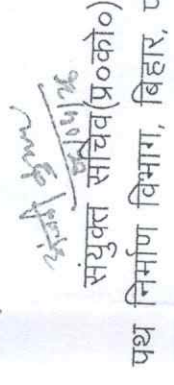 संयुक्त सचिव(प्र०को०)
पथ निर्माण विभाग, बिहार,